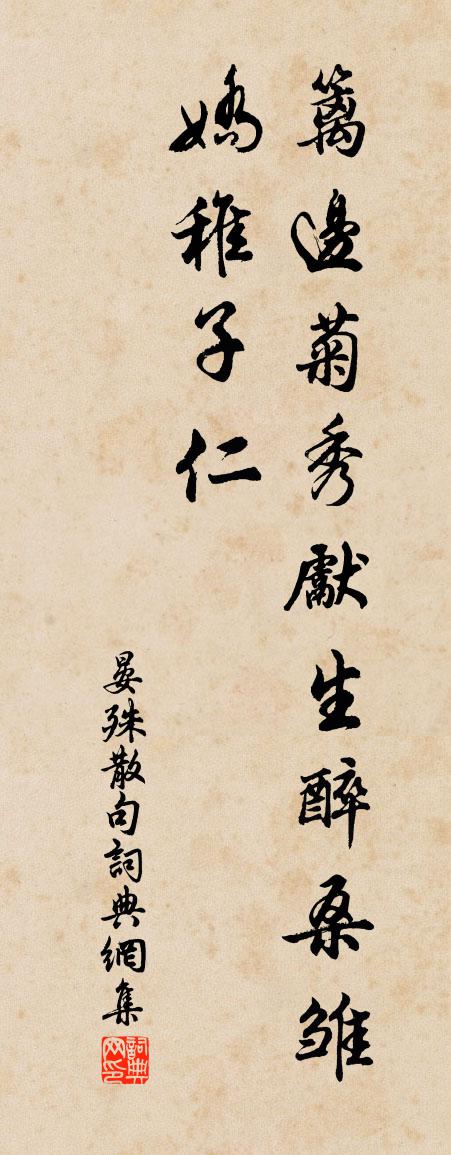 籬邊菊秀獻生醉桑雏
嬌稚子仁
晏殊散句詞典網集
詞典网印